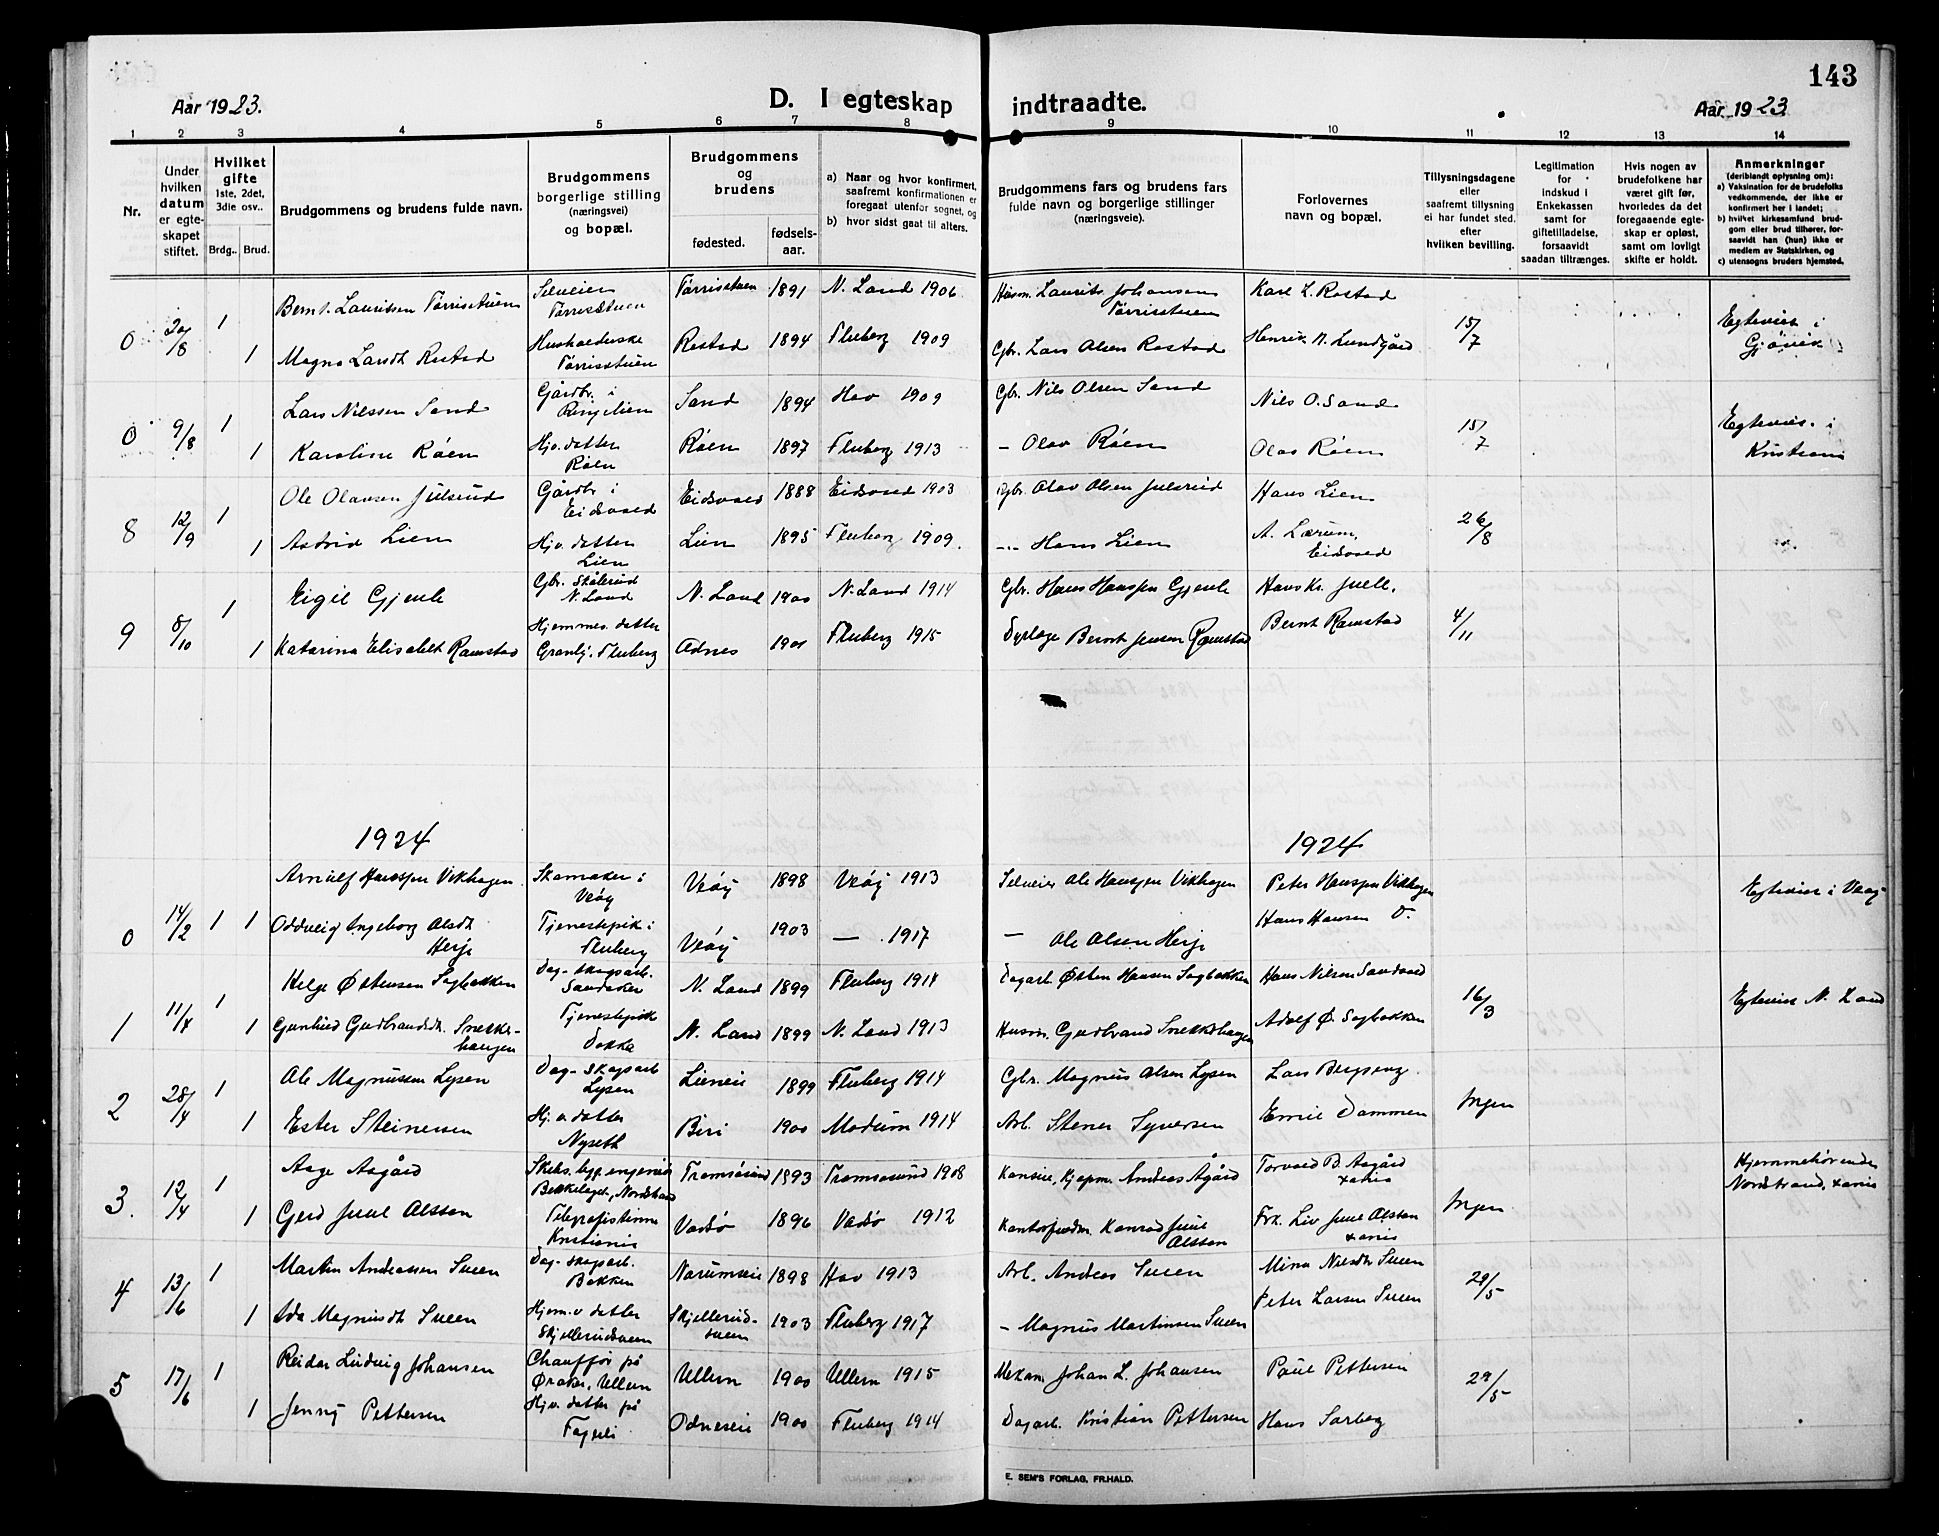 143
Aar 1923.
D. I egteskap indtraadte.
Aar 1923
1 2 3 4 5 6 7 8 9 10 11 12 13 14
Nr.
Under hvilken datum er egteskapet stiftet.
Hvilket gifte 1ste, 2det, 3die osv..
Brdg.. Brud.
Brudgommens og brudens fulde navn.
Brudgommens borgerlige stilling (næringsvei) og bopæl.
Brudgommens og brudens
fødested.
fødselsaar.
a) Naar og hvor konfirmert, saafremt konfirmationen er foregaat utenfor sognet, og
b) hvor sidst gaat til alters.
Brudgommens fars og brudens fars fulde navn og borgerlige stillinger (næringsveie).
Forlovernes navn og bopæl.
Tillysningsdagene eller saafremt tillysning ei har fundet sted. efter hvilken bevilling.
Legitimation for indskud i Enkekassen samt for giftetilladelse, forsaavidt saadan tiltrænges.
Hvis nogen av brudefolkene har været gift før, hvorledes da det foregaaende egteskap er opløst, samt om lovligt skifte er holdt.
Anmerkninger (deriblandt oplysning om):
a) Vaksination for de brudefolks vedkommende, der ikke er konfirmert her i landet;
b) hvilket kirkesamfund brudgom eller brud tilhører, forsaavidt han (hun) ikke er medlem av Statskirken, og
c) utensogns bruders hjemsted.
0 20/8 1 Bernt Lauritsen Tørrisstuen Selveier Tørrisstuen Tørrisstuen 1891 N. Land 1906 Husm. Laurits Johansen Tørrisstuen Karl L. Rostad 15/7 Egteviet i Gjøvik
1 Magna Larsdt. Rostad Husholderske Tørrisstuen Rostad 1894 Fluberg 1909 Gbr. Lars Olsen Rostad Henrik N. Lundgård
0 9/8 1 Lars Nilssen Sand Gårdbr. i Ringelien Sand 1894 Hov 1909 Gbr. Nils Olsen Sand Nils O. Sand 15/7 Egteviet i Kristiania
1 Karoline Røen Hjv. datter Røen Røen 1897 Fluberg 1913 – Olav Røen Olav Røen
8 12/9 1 Ole Olavsen Julsrud Gårdbr. i Eidsvold Eidsvold 1888 Eidsvold 1903 Gbr. Olav Olsen Julsrud Hans Lien 26/8
1 Astrid Lien Hjv. datter Lien Lien 1895 Fluberg 1909. – Hans Lien A. Lærum, Eidsvold
9 8/10 1 Eigil Gjeule Gbr. Skålerud N. Land N. Land 1900 N. Land 1914 Gbr. Hans Hanssen Gjeule Hans Kr. Juell. 4/11
1 Katarina Elisabeth Ramstad Hjemmev. datter Granly, Fluberg Odnes 1901 Fluberg 1915 Dyrlæge Bernt Jensen Ramstad Bernt Ramstad
1924 1924
0 14/2 1 1 Arnulf Hanssen Vikhagen Skomaker i Veøy Veøy 1898 Veøy 1913 Selveier Ole Hanssen Vikhagen Peter Hanssen Vikhagen Egteviet i Veøy
Oddveig Ingeborg Olsdt. Herje Tjenestepik i Fluberg Veøy 1903 — 1917 — Ole Olsen Herje Hans Hansen
1 11/4 1 Helge Østensen Sagbakken Dag- skogsarb. Sandaker N. Land 1899 Fluberg 1914 Dagarb. Østen Hansen Sagbakken Hans Nilsen Sandvold 16/3 Egteviet N. Land
1 Gunhild Gudbrandsdt. Snekkerhaugen Tjenestepik Dokka N. Land 1899 N. Land 1913 Husm. Gudbrand Snekkerhaugen Adolf Ø. Sagbakken
2 28/4 1 Ole Magnussen Lysen Dag- skogsarb. Lysen Lieneie 1899 Fluberg 1914 Gbr. Magnus Olsen Lysen Lars Bergeng. Ingen
1 Ester Steinersen Hj. v. datter Nyseth Biri 1900 Modum 1914 Arb. Stener Syversen Emil Dammen
3. 12/4 1 Aage Aagård Skibs. byg. engeniør Bekkelaget, Nordstrand Tromsøsund 1893 Tromsøsund 1908 Konsul, Kjøpm. Andreas Ågård Torvald B. Aagård Ingen Hjemmehørende Nordstrand,
1 Gerd Juul Olssen Telegrafistinne Kristiania Vadsø 1896 Vadsø 1912 Konrad Juul Olssen Frk. Liv Juul Olssen
4 13/6 1 Martin Andreassen Sveen Dag- skogsarb. Bakken Narumseie 1898 Hov 1913 Arb. Andreas Sveen Mina Nilsdt. Sveen 29/5
1 Ada Magnusdt. Sveen Hjem. v. datter Skjellerudsveen Skjellerudsveen 1903 Fluberg 1917 – Magnus Martinsen Sveen Peter Larsen Sveen
5 17/6 1 Reidar Ludvig Johansen Chauffør på Øraker, Ullern Ullern 1900 Ullern 1915 Mekan. Johan L. Johansen Paul Pettersen 29/5
1 Jenny Pettersen Hjv. datter på Fagerli Odneseie 1900 Fluberg 1914 Dagarb. Kristian Pettersen Hans Sørberg
E. SEM'S FORLAG, FR.HALD.